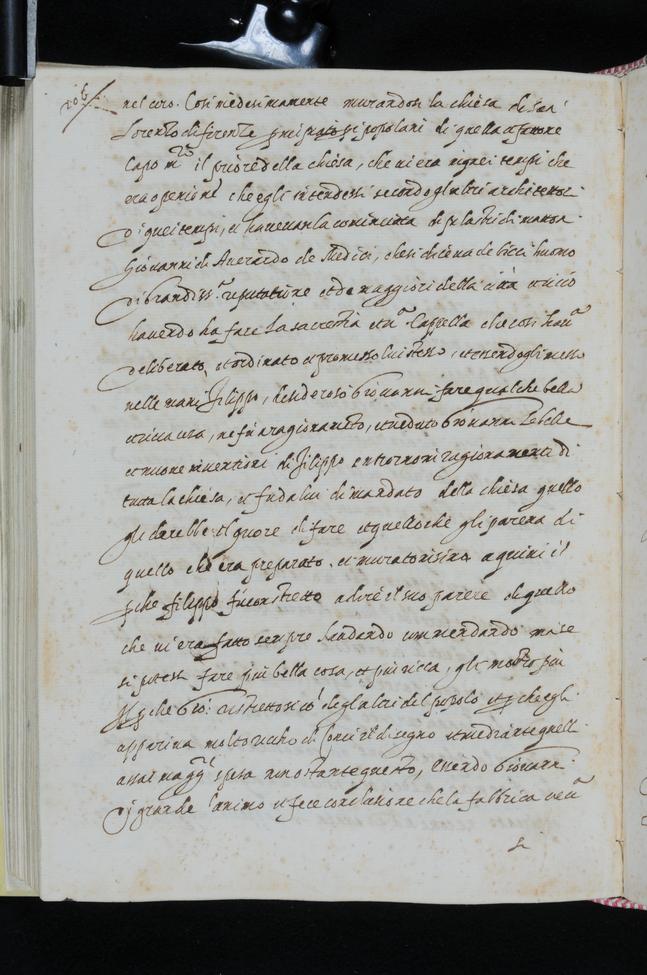 nel cero. Cosi medesimamente murandosi la chiesa di San
Lorenzo di firenze principiata si popolani di quella et fattone
Capo m.ro il priore della chiesa, che vi era in quei tempi che
era openione che egli intendessi secondo gl'altri architettori
di quei tempi, et havevan la cominciata di pilastri di
Giovanni di Averardo de Medici, che si diceva de bicci huomo
di grandiss.a reputatione et de maggiori della città et ricco
havendo ha fare la sacrestia et un.a Cappella che cosi
deliberato, et ordinato et promesso lui stesso, et
nelle mani filippo, desideroso Giovanni fare qualche bella
et ricca cosa, ne fu a ragionamento, et veduto Giovanni le belle
et nuove inventioni di filippo entrorno in ragionamenti di
tutta la chiesa, et fu da lui dimandato della chiesa quello
gli darebbe il quore di fare et quello che gli pareva di
quello che era preparato et murato insino a quivi il
perche filippo fu constretto a dire il suo parere di quello
che vi era fatto sempre laudando commendando ma se
si potessi fare piu bella cosa, et piu ricca, gli mostro piu
perche Gio: ristrettosi co' degl'altri del popolo et perche egli
appariva molto ricco disegno et mediante quelli
assai magg.r spesa nonostante questo, essendo Giovanni
di grande animo et fece conclusione che la fabbrica
si